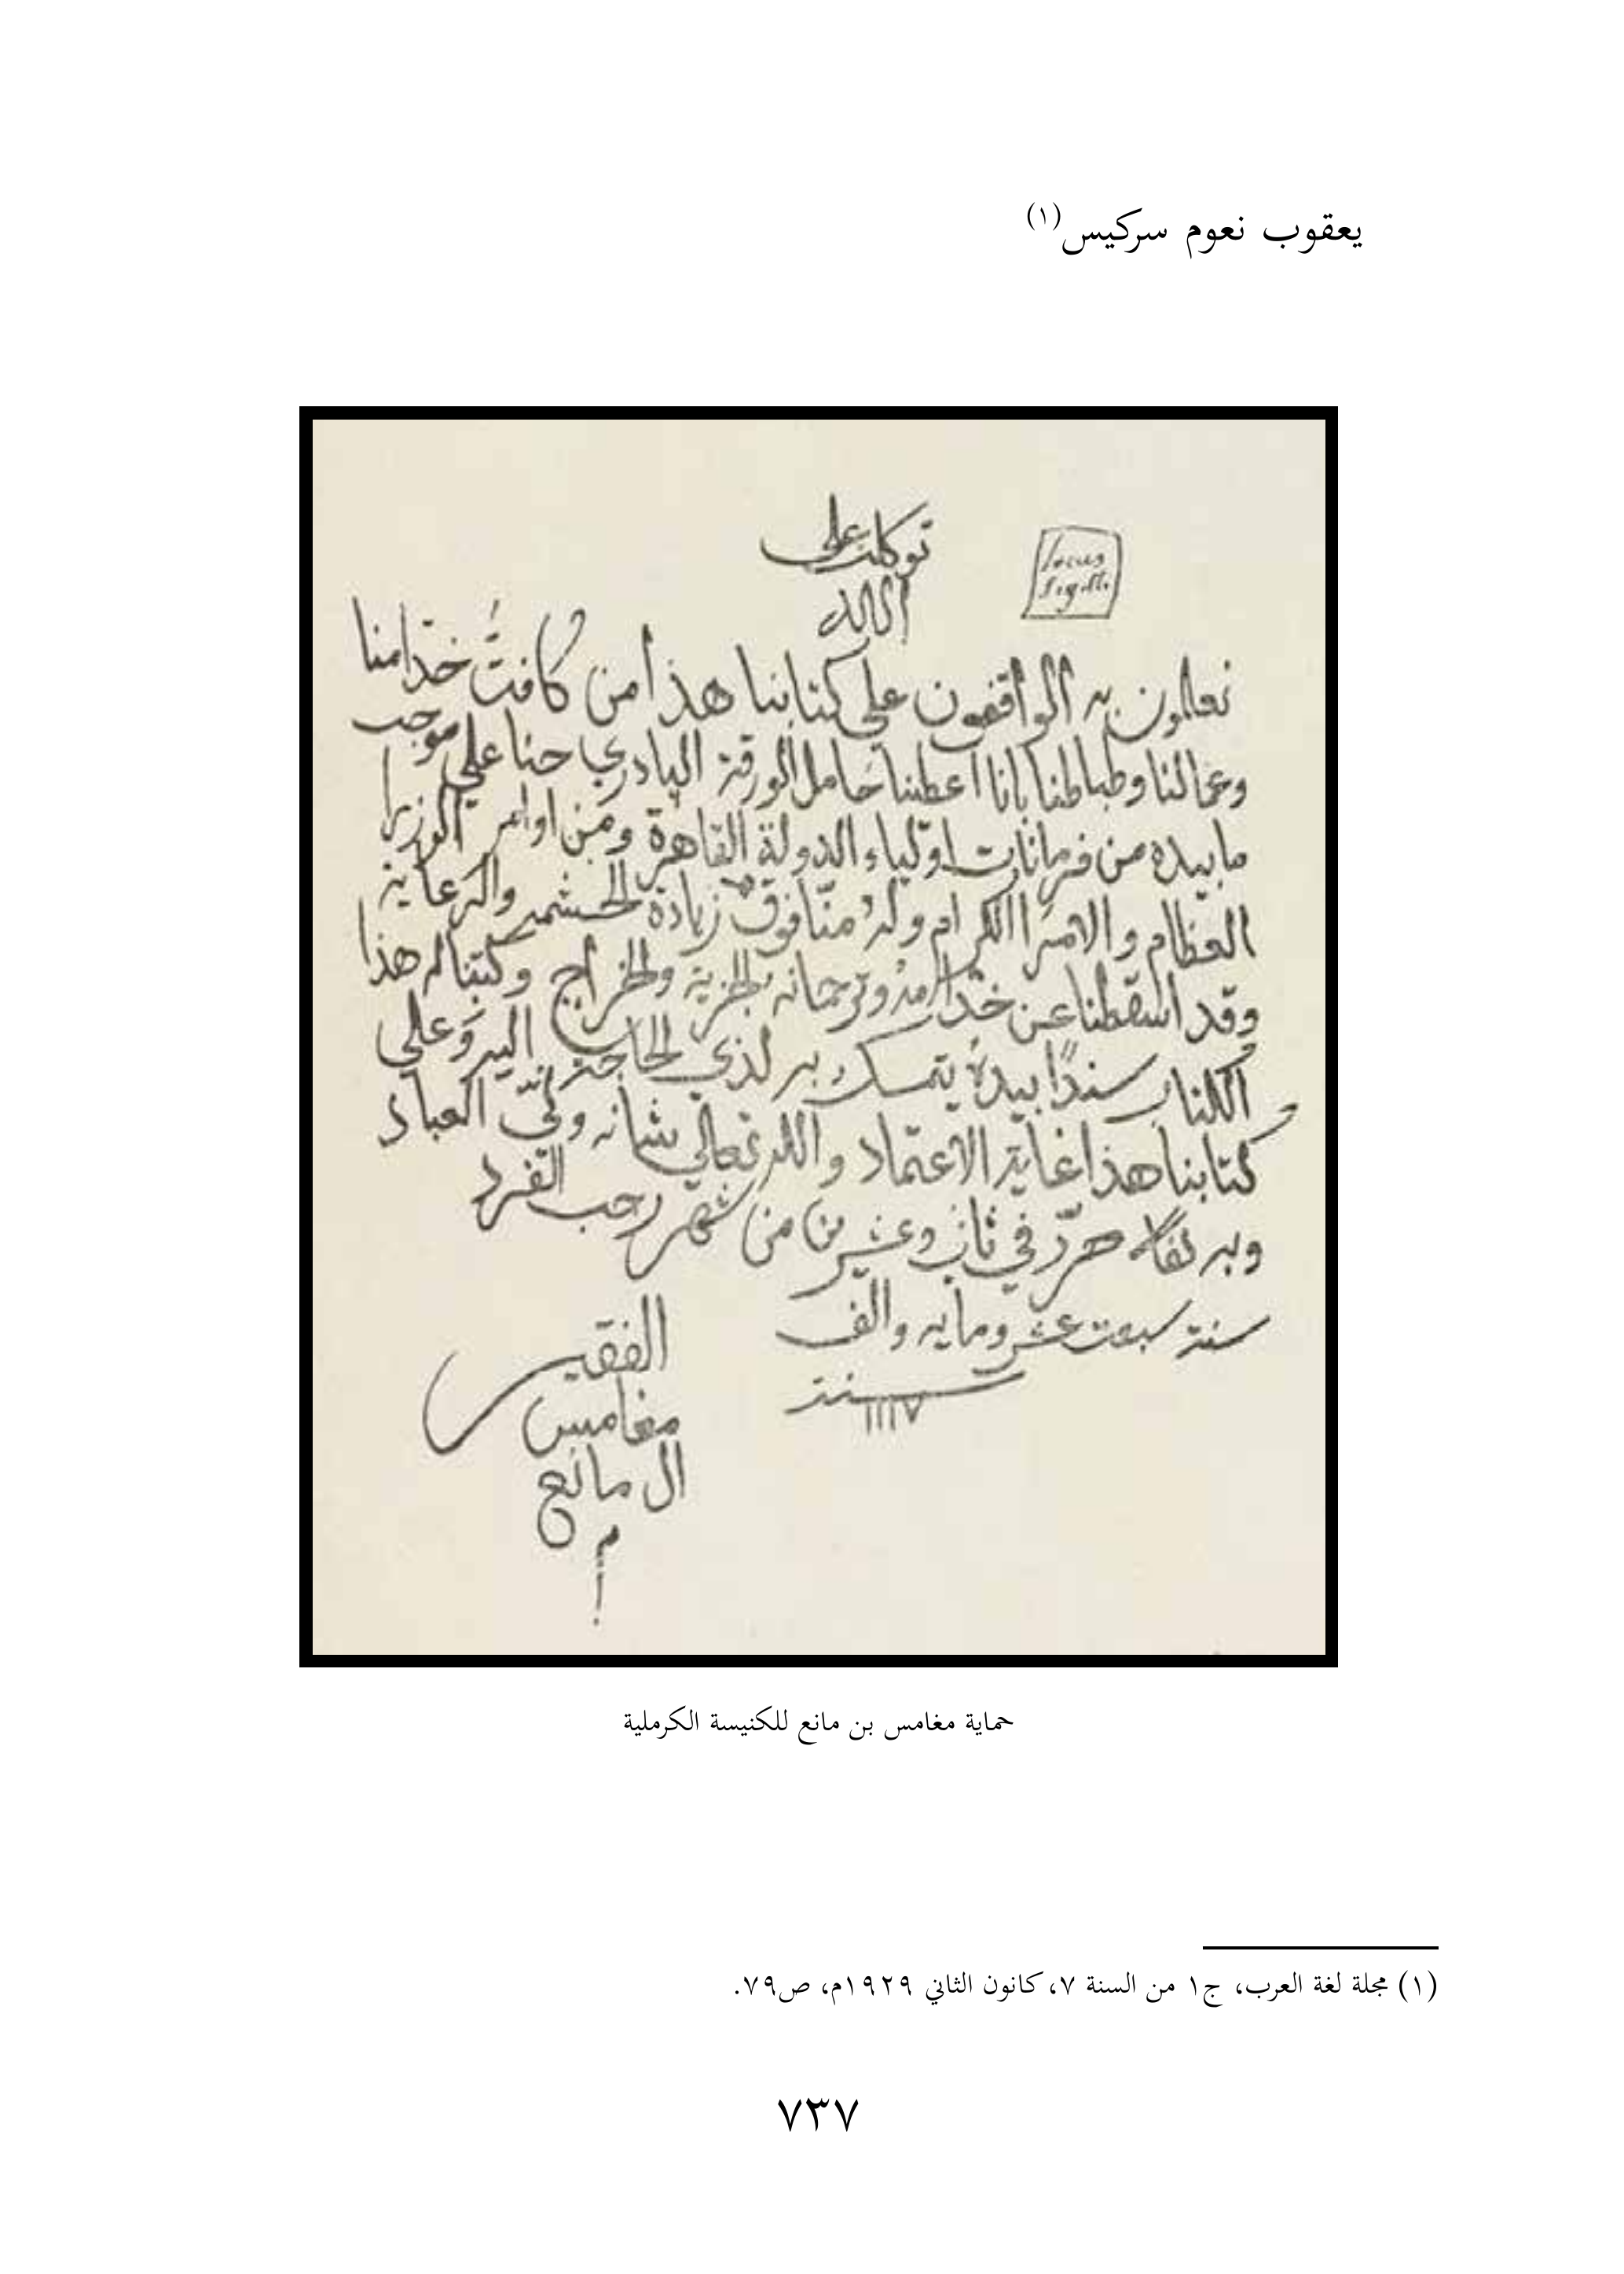 يعقوب نعوم سركيس(١)
توكلت على
الله
locus
sigilli
تعلمون به الواقفون على كتابنا هذا من كافت خدامنا
وعمالنا وظباطنا بانا اعطينا حامل الورقة البادري حنا على موجب
ما بيده من فرمانات اولياء الدولة القاهرة ومن اوامر الوزرا
العظام والامرا الكرام وله منا فوق زيادة الحشمه والرعاية
وقد اسقطنا عن خدامه وترجمانه الجزية والخراج وكتبنا له هذا
الكتاب سندًا بيده يتمسك به لذي الحاجة اليه وعلى
كتابنا هذا غاية الاعتماد والله تعالى شانه ولي العباد
وبه في ثاني وعشرين من شهر رجب الفرد
سنة سبعت عشر ومايه والف
سنة
١١١٧
الفقير
مغامس
ال مانع
م
حماية مغامس بن مانع للكنيسة الكرملية
(١) مجلة لغة العرب، ج١ من السنة ٧، كانون الثاني ١٩٢٩م، ص٧٩.
٧٣٧